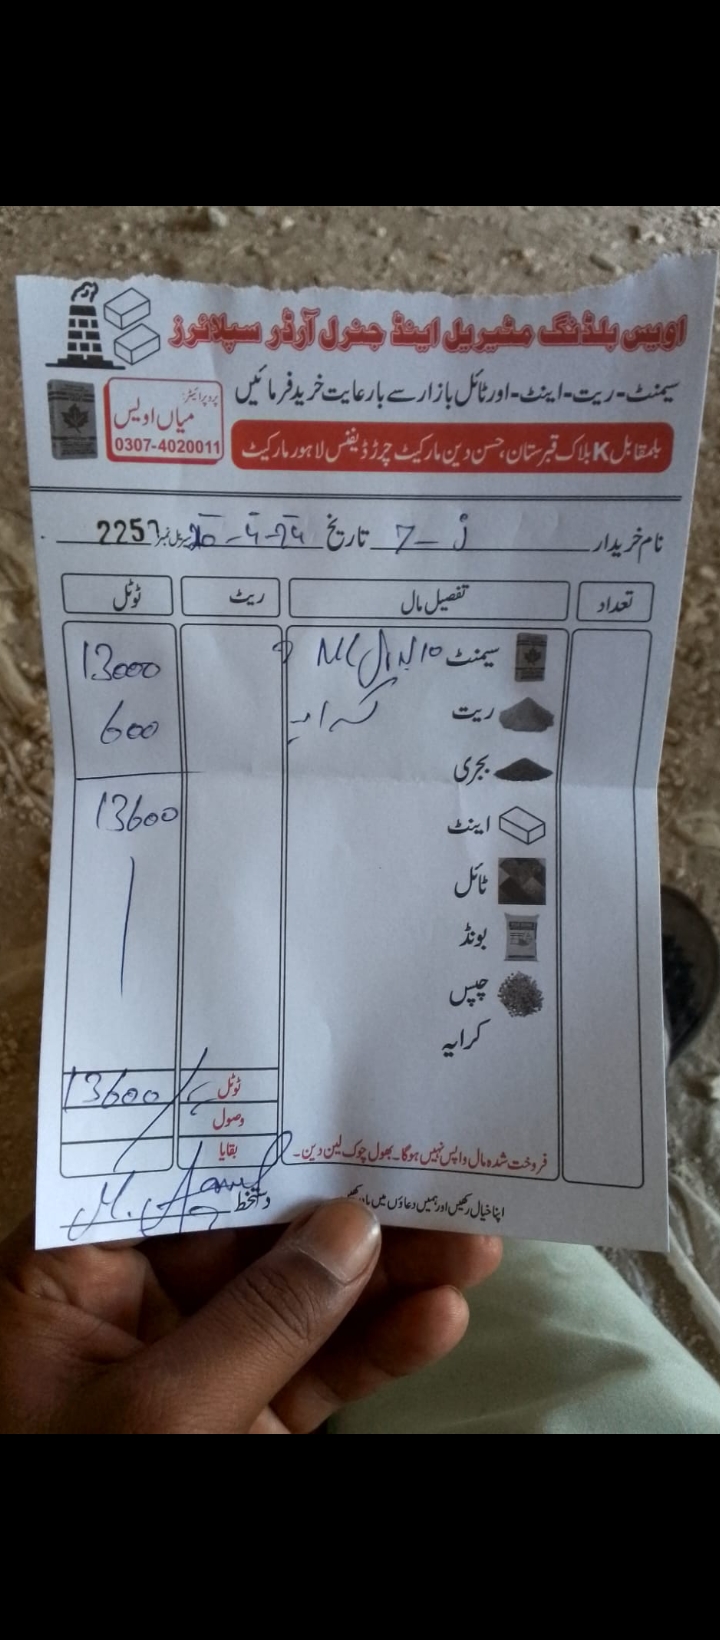 اویس بلڈنگ مٹیریل اینڈ جنرل آرڈر سپلائرز
سیمنٹ-ریت-اینٹ-اور ٹائل بازار سے بارعایت خرید فرمائیں
پروپرائیٹر:
میاں اویس
0307-4020011
بلمقابل K بلاک قبرستان، حسن دین مارکیٹ چرڑ ڈیفنس لاہور مارکیٹ
نام خریدار 7 – J تاریخ 20-4-24 سیریل نمبر 2257
تعداد تفصیل مال ریٹ ٹوٹل
سیمنٹ 13000
ریت کرایہ 600
بجری
اینٹ 13600
ٹائل
بونڈ
چپس
کرایہ
ٹوٹل 13600
وصول
بقایا
فروخت شدہ مال واپس نہیں ہوگا۔ بھول چوک لین دین۔
اپنا خیال رکھیں اور ہمیں دعاؤں میں یاد رکھیں
دستخط